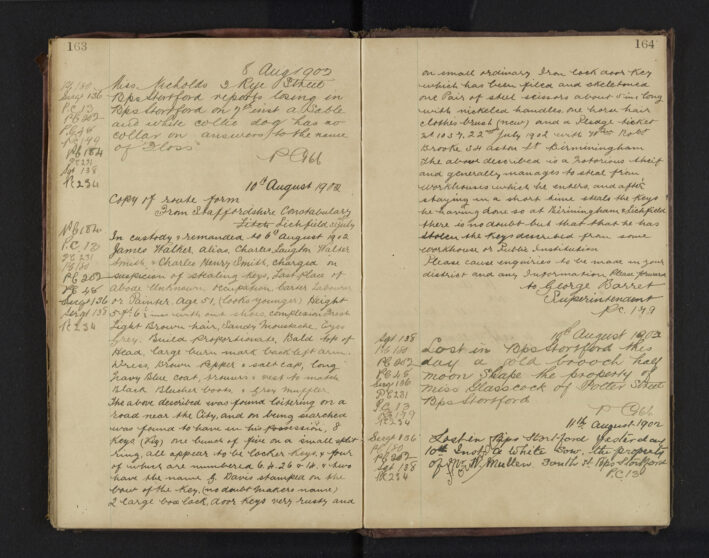 163
8 Aug 1902
Miss Nicholds 3 Rye Street
Bps Stortford reports losing in
Bps Stortford on 7th inst a Sable
and white collie dog has no
collar on answers to the name
of "Floss"
PC 266
10th August 1902
Copy of route form
From Staffordshire Constabulary
Lichfield 31 July
In custody & remanded to 6th August 1902
James Walker, alias Charles Langton Walter
Smith & Charles Henry Smith, charged on
suspicion of stealing keys, Last place of
abode unknown, occupation Labourer
or Painter, Age 51, (looks younger) Height
5 ft 6½ ins without shoes, complexion Fresh
Light Brown hair, Sandy Moustache, Eyes
Grey. Build Proportionate, Bald top of
Head, large burn mark back left arm.
Dress, Brown Pepper & salt cap, long
Navy Blue Coat, trousers & vest to match
Black Blucher boots, & grey muffler.
The above described was found loitering on a
road near the City, and on being searched
was found to have in his possession, 8
Keys (viz) one bunch of five on a small split
ring, all appear to be locker keys, & four
of which are numbered 6. 4. 26 & 14, & two
have the name G. Davis stamped on the
bow of the key, (no doubt makers name)
2 large box lock door keys very rusty and
PC 180
Sergt 136
PC 13
PC 202
PC 48
PC 179
PC 184
PC 231
Sgt 138
PC 234
PC 184
PC 13
PC 231
PC 180
PC 202
PC 48
Sergt 136
Sergt 138
PC 234
164
on small ordinary Iron lock door key
which has been filed and skeletoned
one Pair of steel scissors about 5 ins long
with nickeled handles, one horse hair
clothes brush (new) and a Pledge ticket
No 1037, 22nd July 1902 with Robt
Brooke 3 Aston St Birmingham
The above described is a Notorious thief
and generally manages to steal from
workhouses which he enters, and after
staying in a short time steals the keys
he having done so at Birmingham & Lichfield
there is no doubt but that that he has
stolen the keys described from some
workhouse or Public Institution
Please cause enquiries to be made in your
district and any Information Please forward
to George Barret
Superintendent
PC 179
11th August 1902
Lost in Bps Stortford this
day a gold brooch half
moon shape the property of
Miss Glasscock of Potter Street
Bps Stortford
PC 266
11th August 1902
Lost in Bps Stortford Yesterday
10th Inst a White Cow. the property
of Mr H. Mullen South St Bps Stortford
PC 13
Sgt 138
PC 180
PC 202
PC 48
Sergt 136
PC 231
PC 13
PC 179
PC 234
Sergt 136
PC 180
PC 202
Sgt 138
PC 234